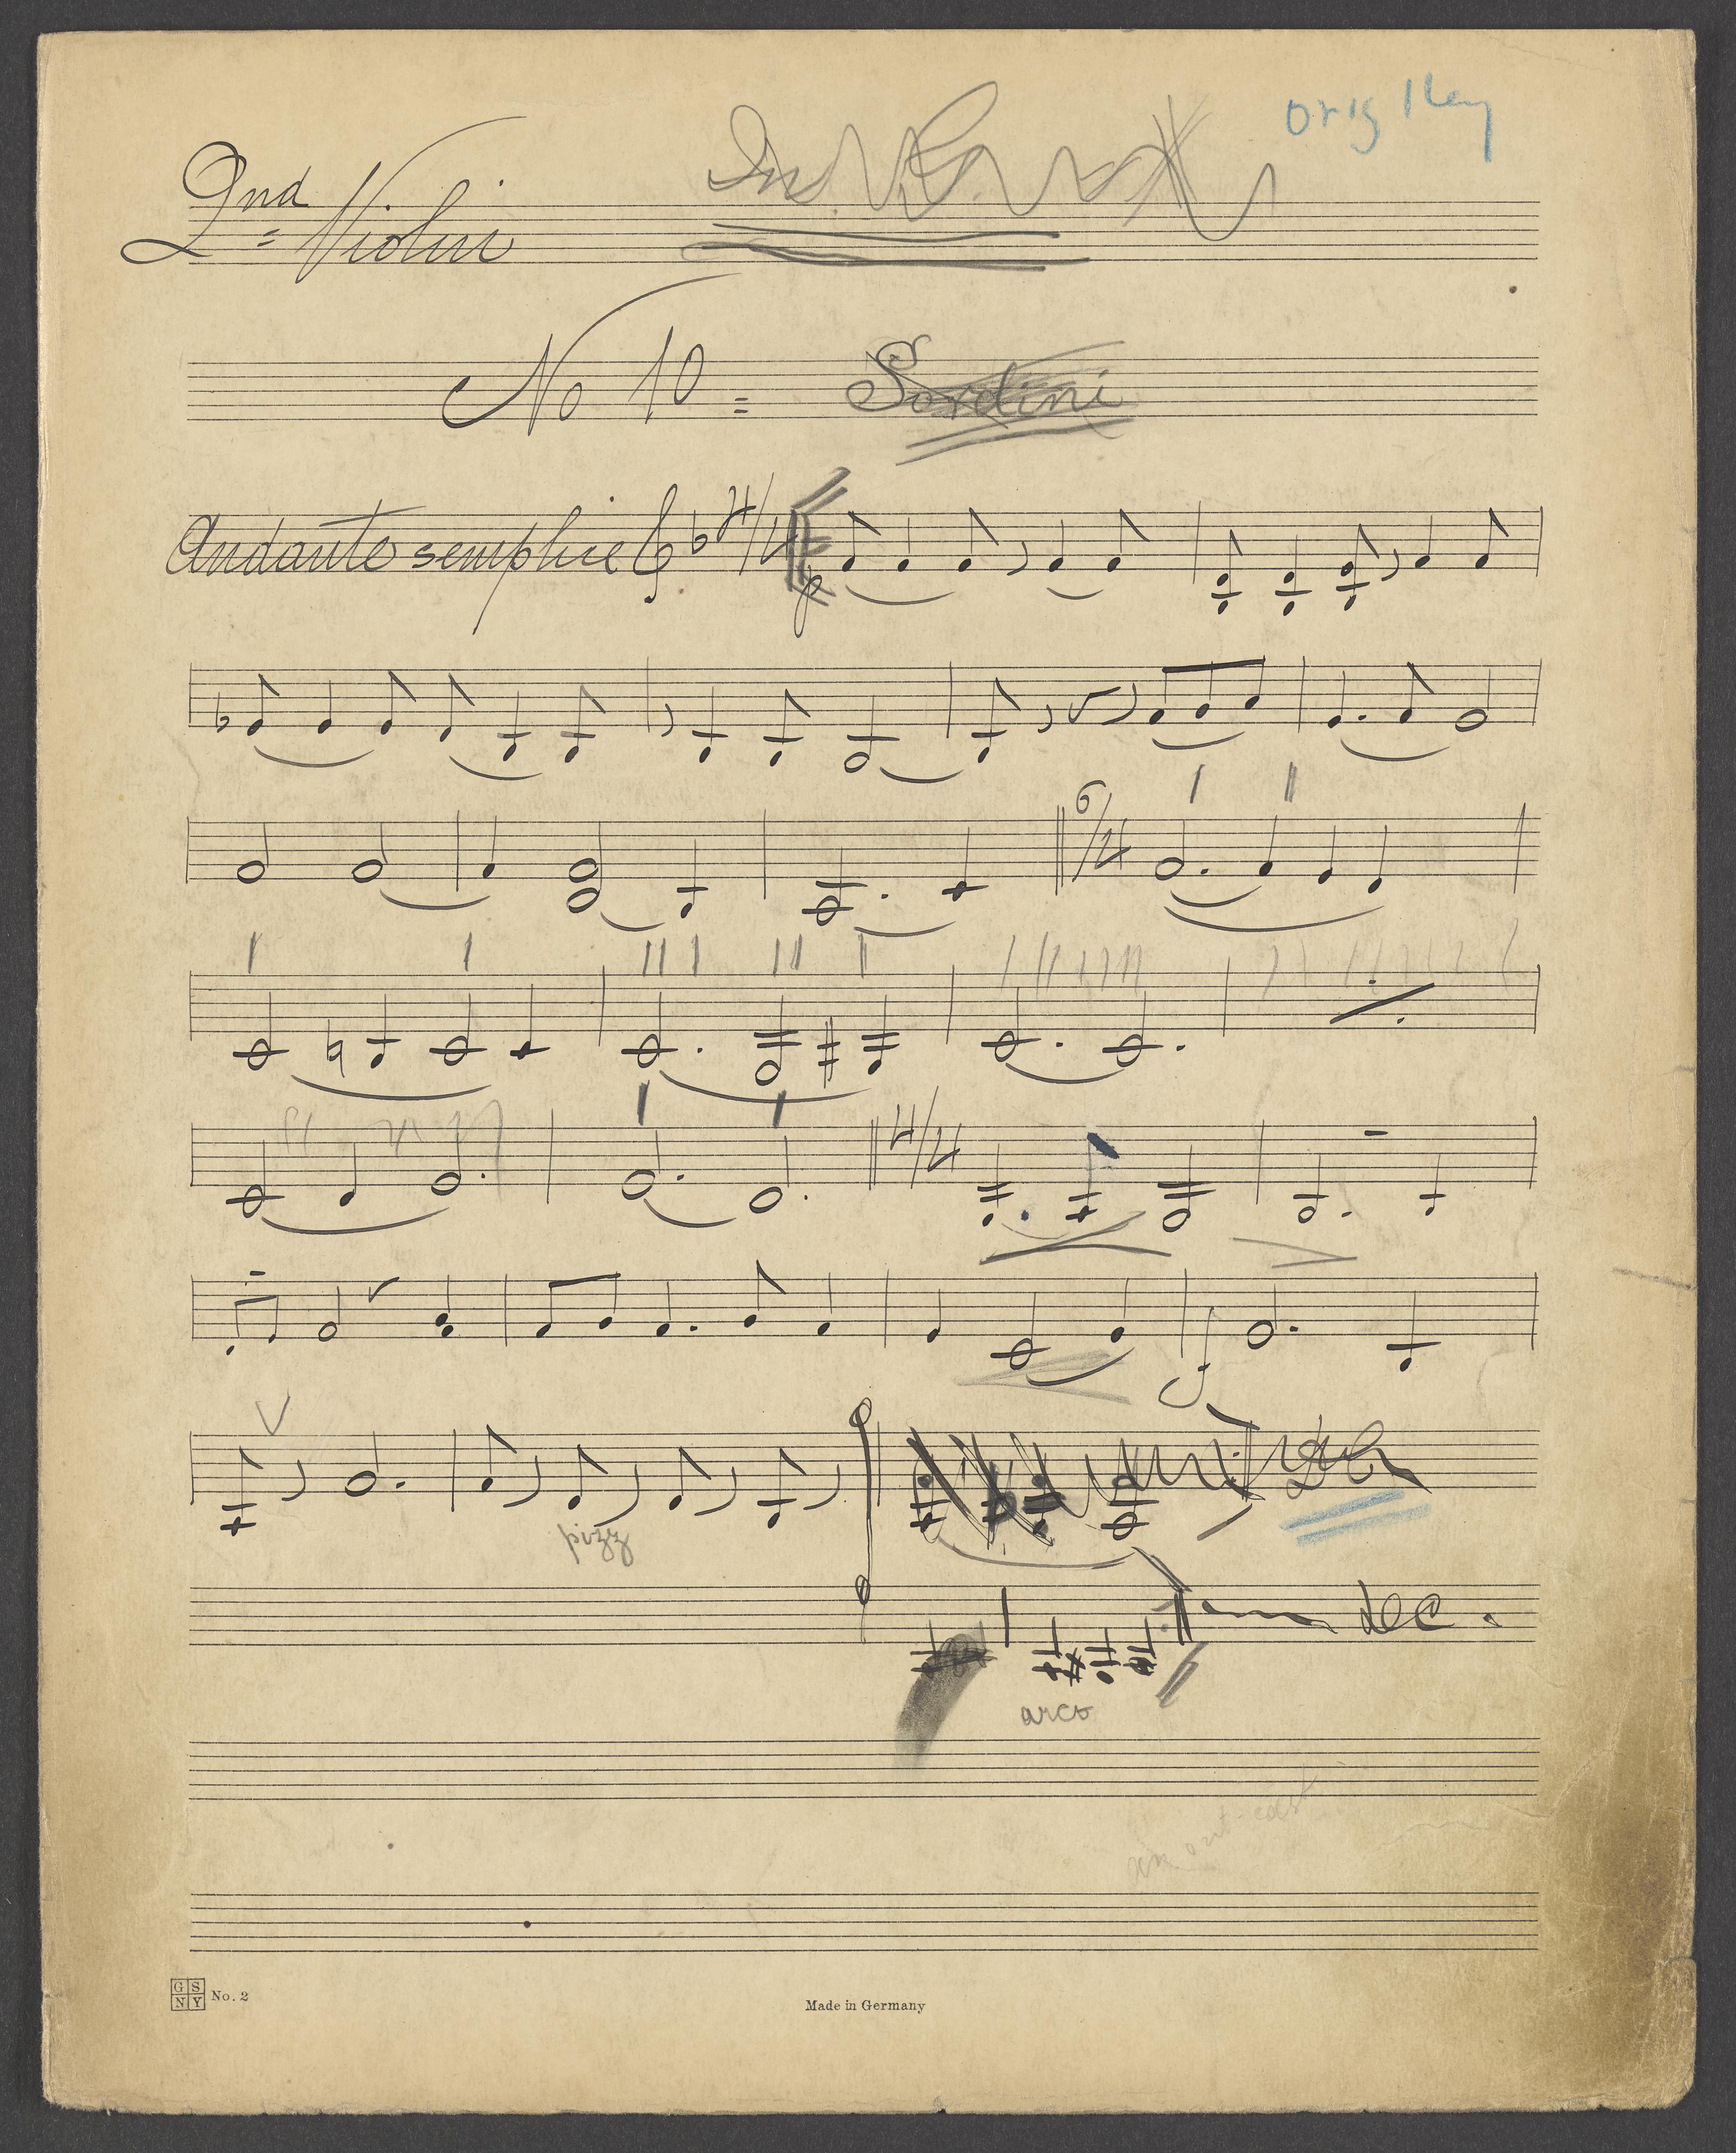 orig Key
2nd Violin
No 10 = Sordini
Andante semplice 4/4
p
6/4
4/4
f
pizz
arco
an out-cast
GS
NY No. 2
Made in Germany